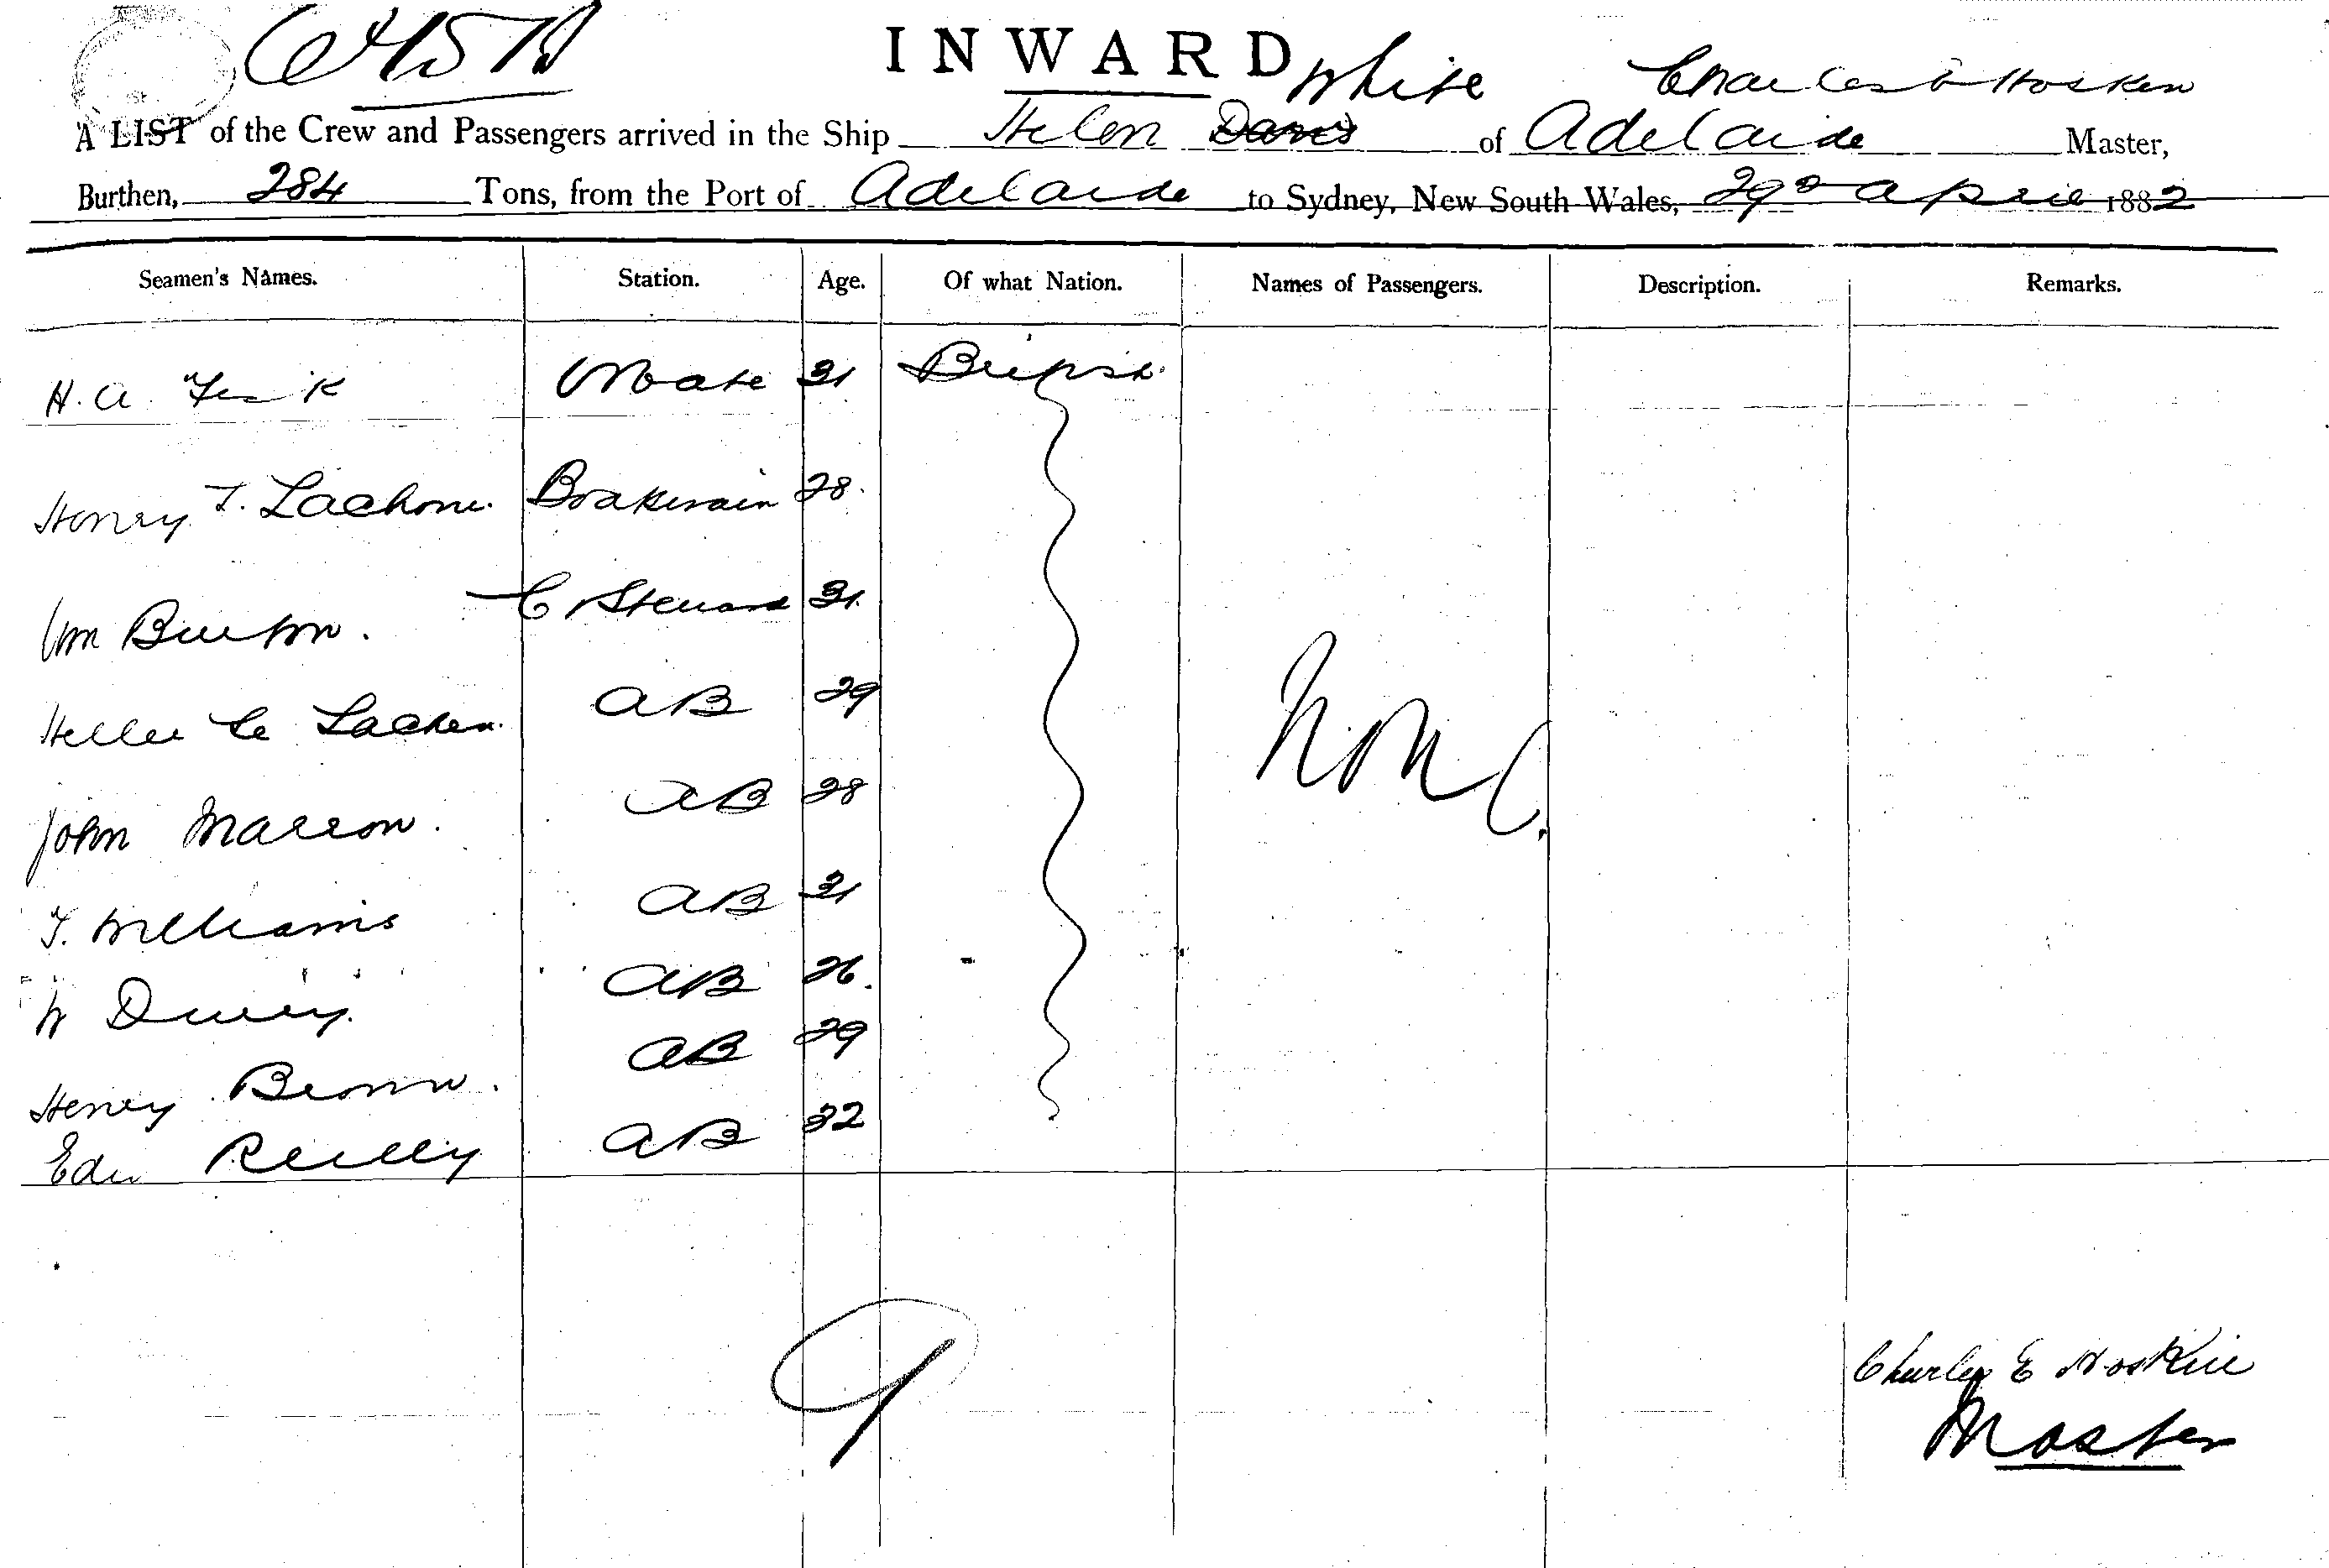 INWARD
White Charles E Hosken
A LIST of the Crew and Passengers arrived in the Ship Helen Davis of Adelaide Master,
Burthen, 284 Tons, from the Port of Adelaide to Sydney, New South Wales, 29 April 1882
Seamen's Names. Station. Age. Of what Nation. Names of Passengers. Description. Remarks.
H. A. Mate 31 British
Henry T. Lachone. Boatswain 28.
Wm Burton. C Steward 31.
Le Lachen. AB 29
John Marron. AB 28
None.
T. Williams AB 31
W AB 26.
Henry Brown. AB 29
Edw Reilly AB 32
9
Charles E Hosken
Master